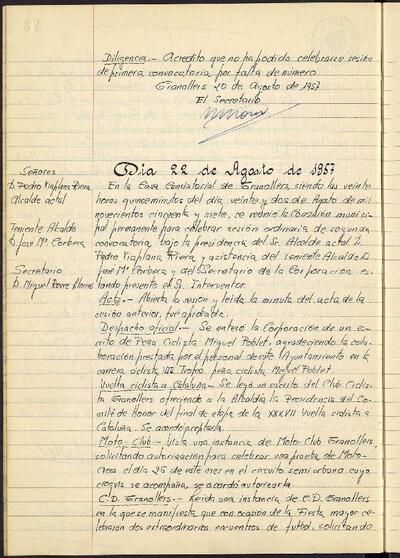 Diligencia.- Acredito que no ha podido celebrarse sesión
de primera convocatoria por falta de número
Granollers 20 de Agosto de 1957
El Secretario
Señores
D. Pedro Viaplana Riera
Alcalde actal
Teniente Alcalde
D. José Mª Corbera
Secretario
D. Miquel
Día 22 de Agosto de 1957
En la Casa Consistorial de Granollers, siendo las veinte
horas quince minutos del día veinte y dos de Agosto de mil
novecientos cincuenta y siete, se reunió la Comisión munici-
pal permanente para celebrar sesión ordinaria de segunda
convocatoria, bajo la presidencia del Sr. Alcalde actal D.
Pedro Viaplana Riera y asistencia del Teniente Alcalde D.
José Mª Corbera y del Secretario de la Corporación, es-
tando presente el Sr. Interventor.
Acta.- Abierta la sesión y leída la minuta del acta de la
sesión anterior, fue aprobada.
Despacho oficial.- Se enteró la Corporación de un es-
crito de Peña Ciclista Miquel Poblet, agradeciendo la cola-
boración prestada por el personal de este Ayuntamiento en la
carrera ciclista VII Trofeo peña ciclista Miquel Poblet.
Vuelta ciclista a Cataluña.- Se leyó un escrito del Club Ciclis-
ta Granollers ofreciendo a la Alcaldía la Presidencia del Co-
mité de Honor del final de etapa de la XXXVII Vuelta ciclista a
Cataluña. Se acordó aceptarla.
Moto-Club.- Vista una instancia de Moto-Club Granollers,
solicitando autorización para celebrar una prueba de Moto-
Cross el día 25 de este mes en el circuito semi urbano cuyo
croquis se acompaña, se acordó autorizarla.
C.D. Granollers.- Leída una instancia de C.D. Granollers
en la que se manifiesta que con ocasión de la Fiesta mayor ce-
lebración dos extraordinarios encuentros de futbol, solicitando